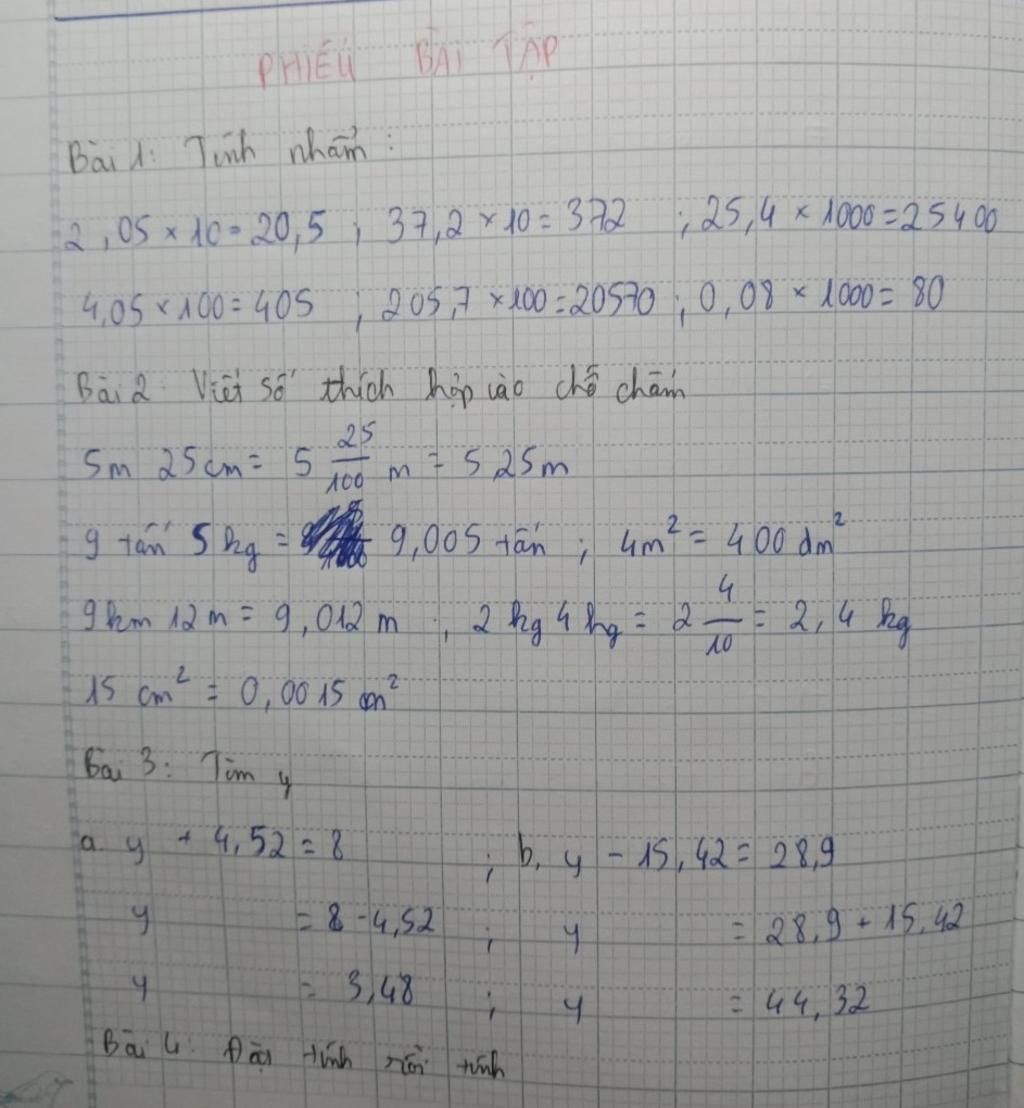 PHIẾU BÀI TẬP
Bài 1: Tính nhẩm:
2,05 × 10 = 20,5 ; 37,2 × 10 = 372 ; 25,4 × 1000 = 25400
4,05 × 100 = 405 ; 205,7 × 100 = 20570 ; 0,08 × 1000 = 80
Bài 2: Viết số thích hợp vào chỗ chấm
5m 25cm = 5 25/100 m = 5,25m
9 tấn 5 kg = 9,005 tấn ; 4m² = 400 dm²
9km 12m = 9,012 m ; 2 kg 4 hg = 2 4/10 = 2,4 kg
15 cm² = 0,0015 m²
Bài 3: Tìm y
a. y + 4,52 = 8 ; b, y - 15,42 = 28,9
y = 8 - 4,52 ; y = 28,9 + 15,42
y = 3,48 ; y = 44,32
Bài 4: Đặt tính rồi tính